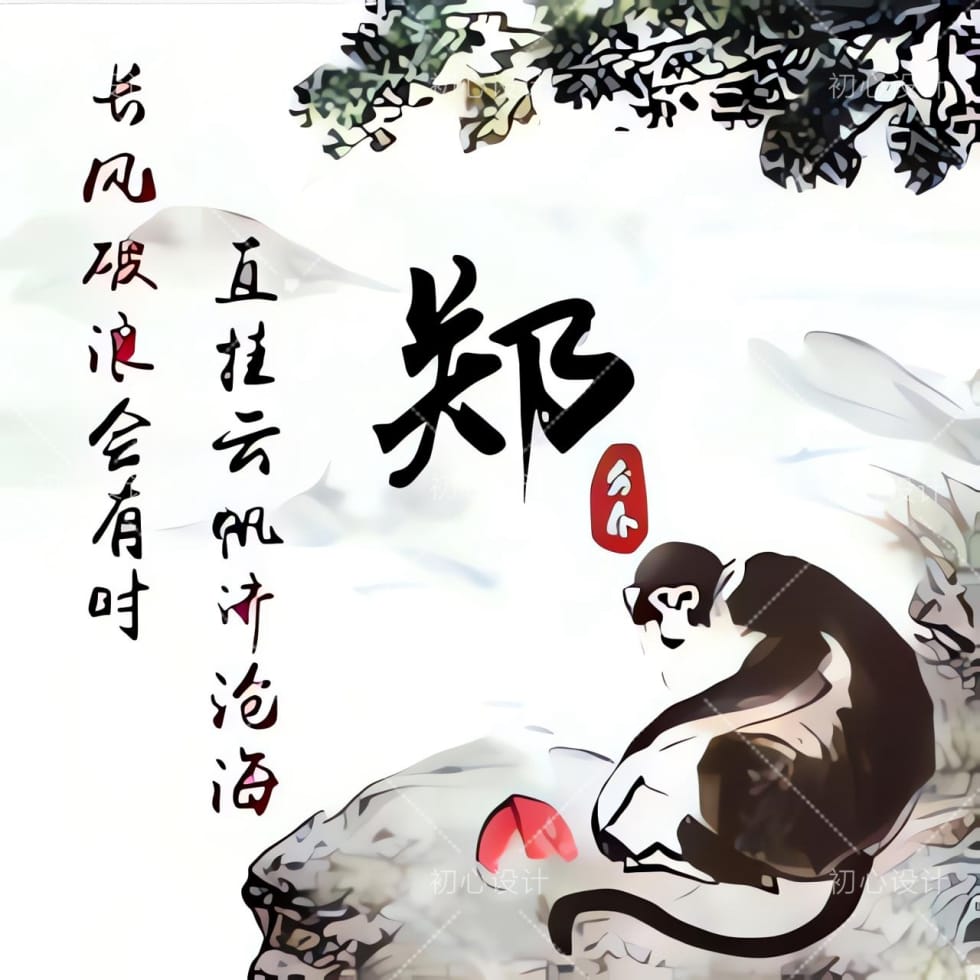 长风破浪会有时
直挂云帆济沧海
郑
初心设计
初心设计
初心设计
初心设计